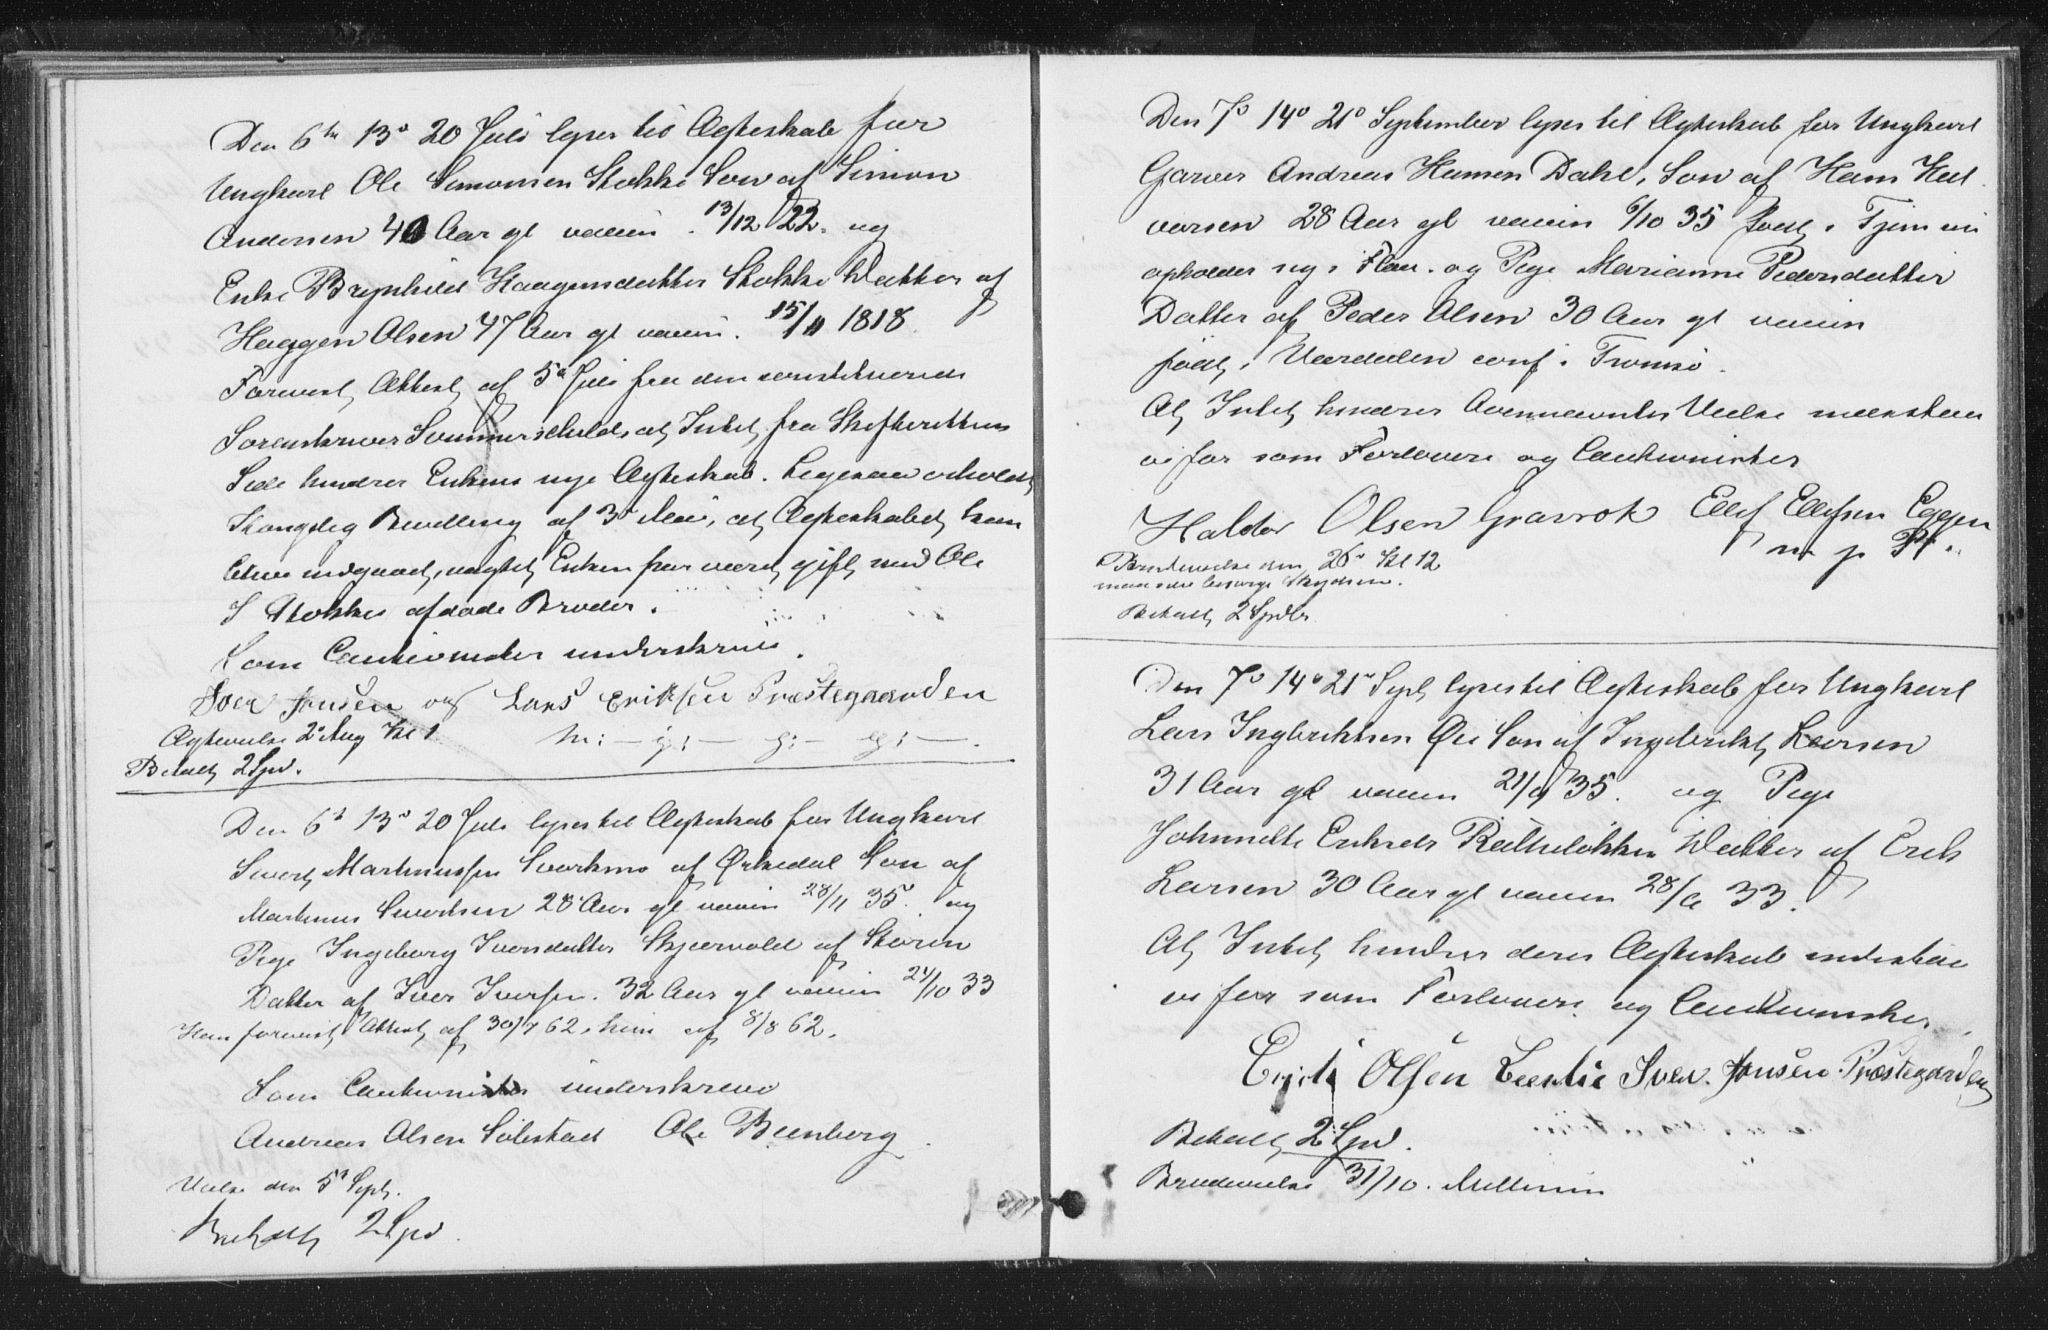 Den 6te 13de 20 Juli lyses til Ægteskab for
Ungkarl Ole Simonsen Stokke Søn af Simon
Andersen 40 Aar gl vaccin. 13/12 22. og
Enke Brynhild Haagensdatter Stokke Datter af
Haagen Olsen 47 Aar gl vaccin. 15/11 1818.
Forevist Attest af 5te Juli fra den constituerede
Sorenskriver Sommerschield, at Intet fra Skifterettens
Side hindrer Enkens nye Ægteskab. Ligesaa
Kongelig Bevilling af 3de Mai, at Ægteskabet kan
blive indgaaet, uagtet Enken har været gift med Ole
S Stokkes afdøde Broder.
Som Cautionister underskrive
Iver Jonsen og Lars Eriksen Præstegaarden
Ægtevielse 2de Aug Kl 1 m: – p: –
Betalt 2 Spd.
Den 6te 13de 20 Juli lyses til Ægteskab for Ungkarl
Sivert Martinussen Svorkmo af Ørkedal Søn af
Martinus Sivertsen 28 Aar gl vaccin 28/11 35. og
Pige Ingeborg Iversdatter Skjærvold af Støren
Datter af Iver Iversen. 32 Aar gl vaccin 24/10 33
Han forevist Attest af 30/7 62, hun af 8/8 62.
Som Cautionister underskreve
Andreas Olsen Solestad Ole Beenberg
Vielse den 5te Sept.
Betalt 2 Spd.
Den 7de 14de 21de September lyses til Ægteskab for Ungkarl
Garver Andreas Hansen Dahl, Søn af Hans Hal
varsen 28 Aar gl vaccin 6/10 35 født i
opholder sig i Flaa. og Pige Marianne Pedersdatter
Datter af Peder Olsen 30 Aar gl vaccin
født i Værdalen conf. i Tromsø.
At Intet hindrer Vielse
vi for som Forlovere og Cautionister
Haldor Olsen Gravrok Ellef Ellefsen Eggen
m p P.
Brudevielse den 26de Kl 12
maa selv besørge Skydsen.
Betalt 2 Spdlr.
Den 7de 14de 21de Sept lyses til Ægteskab for Ungkarl
Lars Ingbrektsen Øie Søn af Ingebrikt Larsen
31 Aar gl vaccin 21/9 35. og Pige
Johnnette Eriksdr Datter af Erik
Larsen 30 Aar gl vaccin 28/6 33.
At Intet hindrer deres Ægteskab indestaae
vi for som Forlovere og Cautionister
Erik Olsen Iver Jonsen Præstegaarden
Betalt 2 Spd.
Brudevielse 31/10.